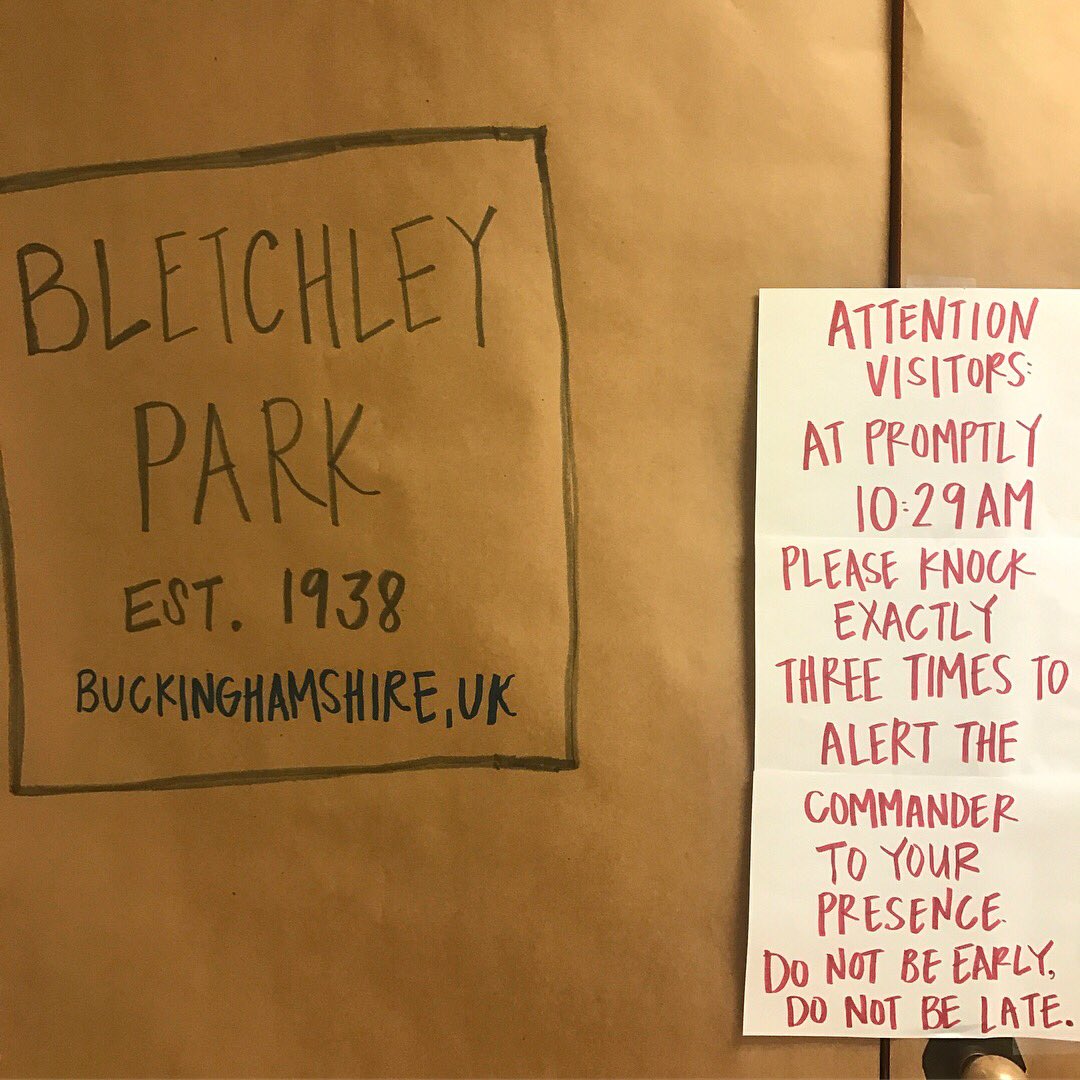 BLETCHLEY
PARK
EST. 1938
BUCKINGHAMSHIRE, UK
ATTENTION
VISITORS:
AT PROMPTLY
10:29AM
PLEASE KNOCK
EXACTLY
THREE TIMES TO
ALERT THE
COMMANDER
TO YOUR
PRESENCE.
DO NOT BE EARLY,
DO NOT BE LATE.